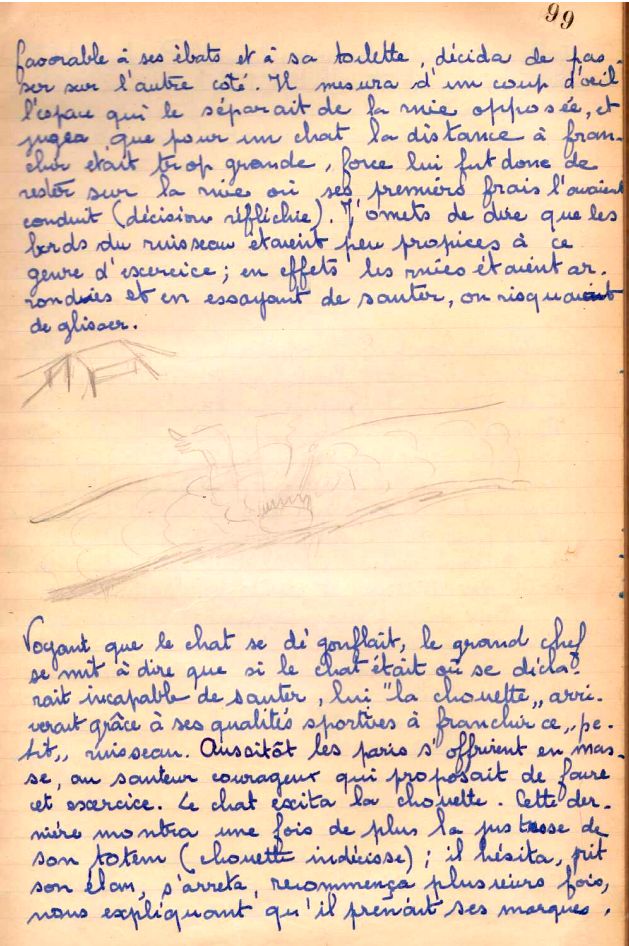 99
favorable à ses èbats et à sa toilette, décida de pas-
ser sur l'autre coté. Il mesura d'un coup d'oeil
l'espace qui le séparait de la rive opposée, et
jugea que pour un chat la distance à fran-
chir était trop grande, force lui fut donc de
rester sur la rive où ses premiers frais l'avaient
conduit (décision réfléchie). J'omets de dire que les
bords du ruisseau étaient peu propices à ce
genre d'exercice; en effets les rives étaient ar-
rondies et en essayant de sauter, on risquait
de glisser.
Voyant que le chat se dé gonflait, le grand chef
se mit à dire que si le chat était où se décla-
rait incapable de sauter, lui "la chouette„ arri-
verait grâce à ses qualités sportives à franchir ce „pe-
tit„ ruisseau. Aussitôt les paris s'offrirent en mas-
se, au sauteur courageux qui proposait de faire
cet exercice. Le chat éxcita la chouette. Cette der-
nière montra une fois de plus la justesse de
son totem (chouette indécisse); il hésita, prit
son élan, s'arreta, recommença plusieurs fois,
nous expliquant qu'il prenait ses marques.